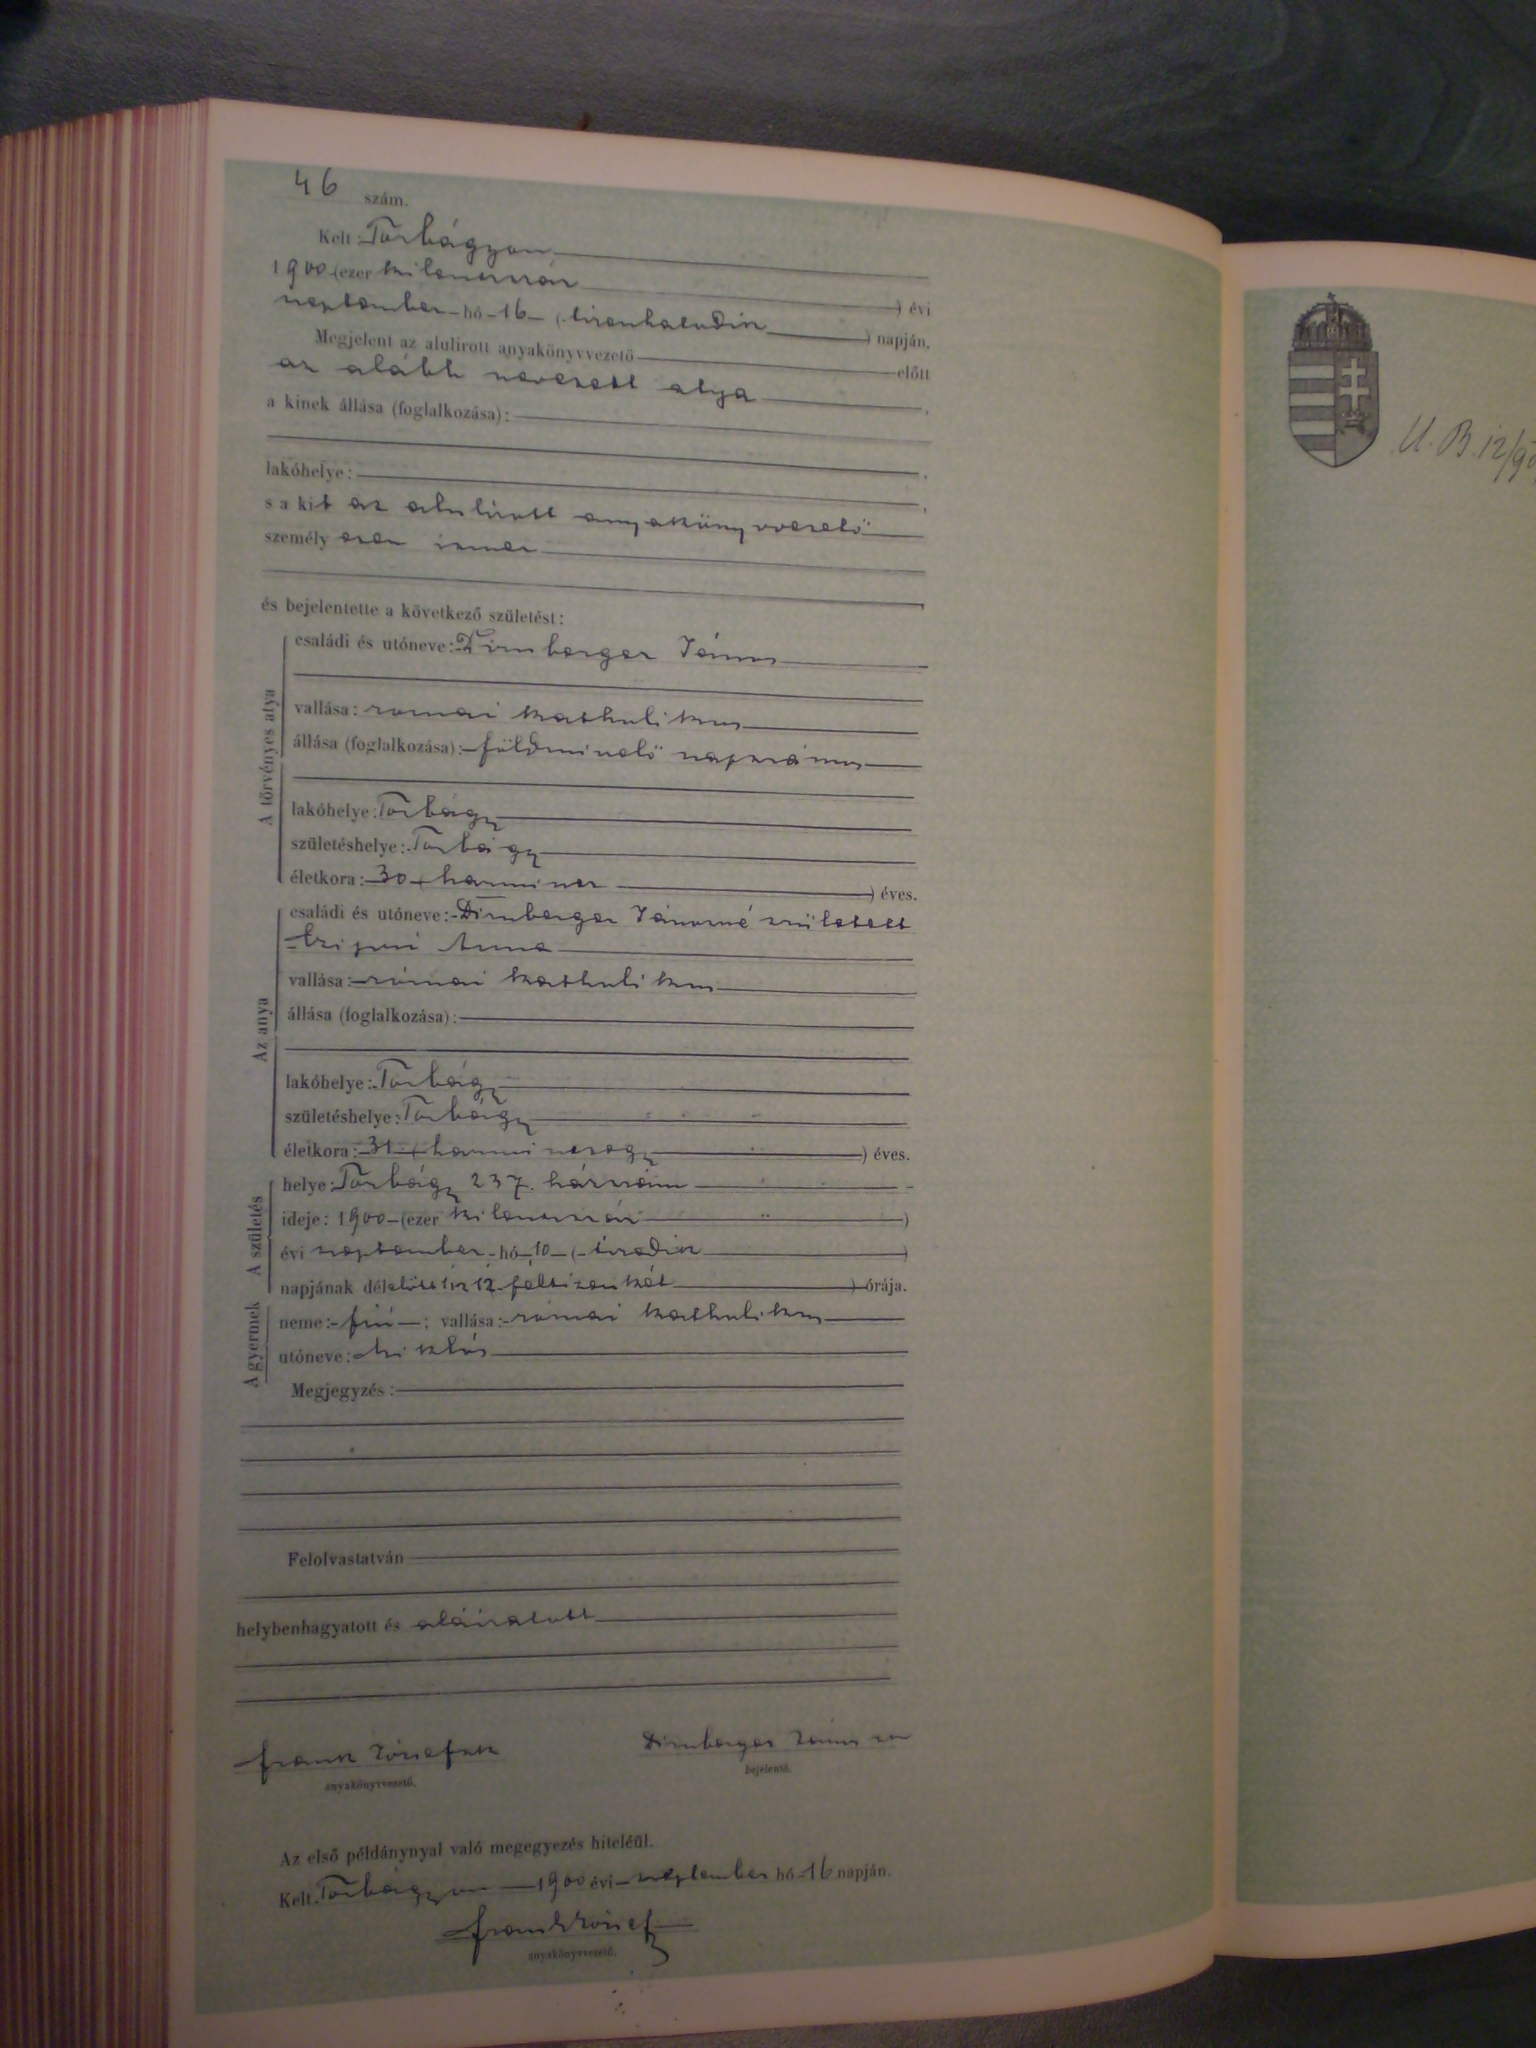 46 szám.
Kelt: Torbágyon
1900 (ezer kilenczszáz ) évi
szeptember hó 16 (tizenhatodik ) napján.
Megjelent az alulirott anyakönyvvezető előtt
az alább nevezett atya ,
a kinek állása (foglalkozása):
lakóhelye: ,
s a kit az alulirott anyakönyvvezető
személyesen ismer
és bejelentette a következő születést:
A törvényes atya
családi és utóneve: Dirnberger János
vallása: romai katholikus
állása (foglalkozása): földmivelő napszámos
lakóhelye: Torbágy
születéshelye: Torbágy
életkora: 30 (harmincz ) éves.
Az anya
családi és utóneve: Dirnberger Jánosné született
Anna
vallása: római katholikus
állása (foglalkozása):
lakóhelye: Torbágy
születéshelye: Torbágy
életkora: 31 (harminczegy ) éves.
A születés
helye: Torbágy 237. házszám
ideje: 1900 (ezer kilenczszáz )
évi szeptember hó 10 (tizedik )
napjának délelőtti 1/2 12 féltizenkét ) órája.
A gyermek
neme: fiú ; vallása: római katholikus
utóneve: Miklós
Megjegyzés:
Felolvastatván
helybenhagyatott és aláiratott
Frank József sk Dirnberger János sk
anyakönyvvezető. bejelentő.
Az első példánynyal való megegyezés hiteléül.
Kelt Torbágyon 1900 évi szeptember hó 16 napján.
Frank József
anyakönyvvezető.
U. B. 12/90